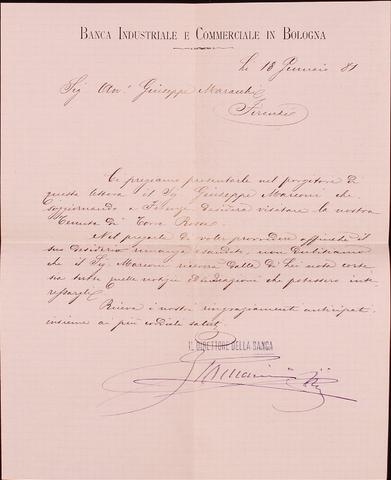 BANCA INDUSTRIALE E COMMERCIALE IN BOLOGNA
Li 18 Gennaio 81
Sig Avv. Giuseppe
Firenze
Ci pregiamo presentarle nel porgitore di
questa lettera il Sig Giuseppe Marconi che
soggiornando a Firenze desidera visitare la nostra
Tenuta di Torre Rossa
Nel pregarla di voler provvedere affinché il
suo desiderio venga esaudito, non dubitiamo
che il Sig Marconi riceverà dalla di Lei nota corte
sia tutte quelle indicazioni che potessero inte
ressargli
Riceva i nostri ringraziamenti anticipati
insieme ai più cordiali saluti
IL DIRETTORE DELLA BANCA